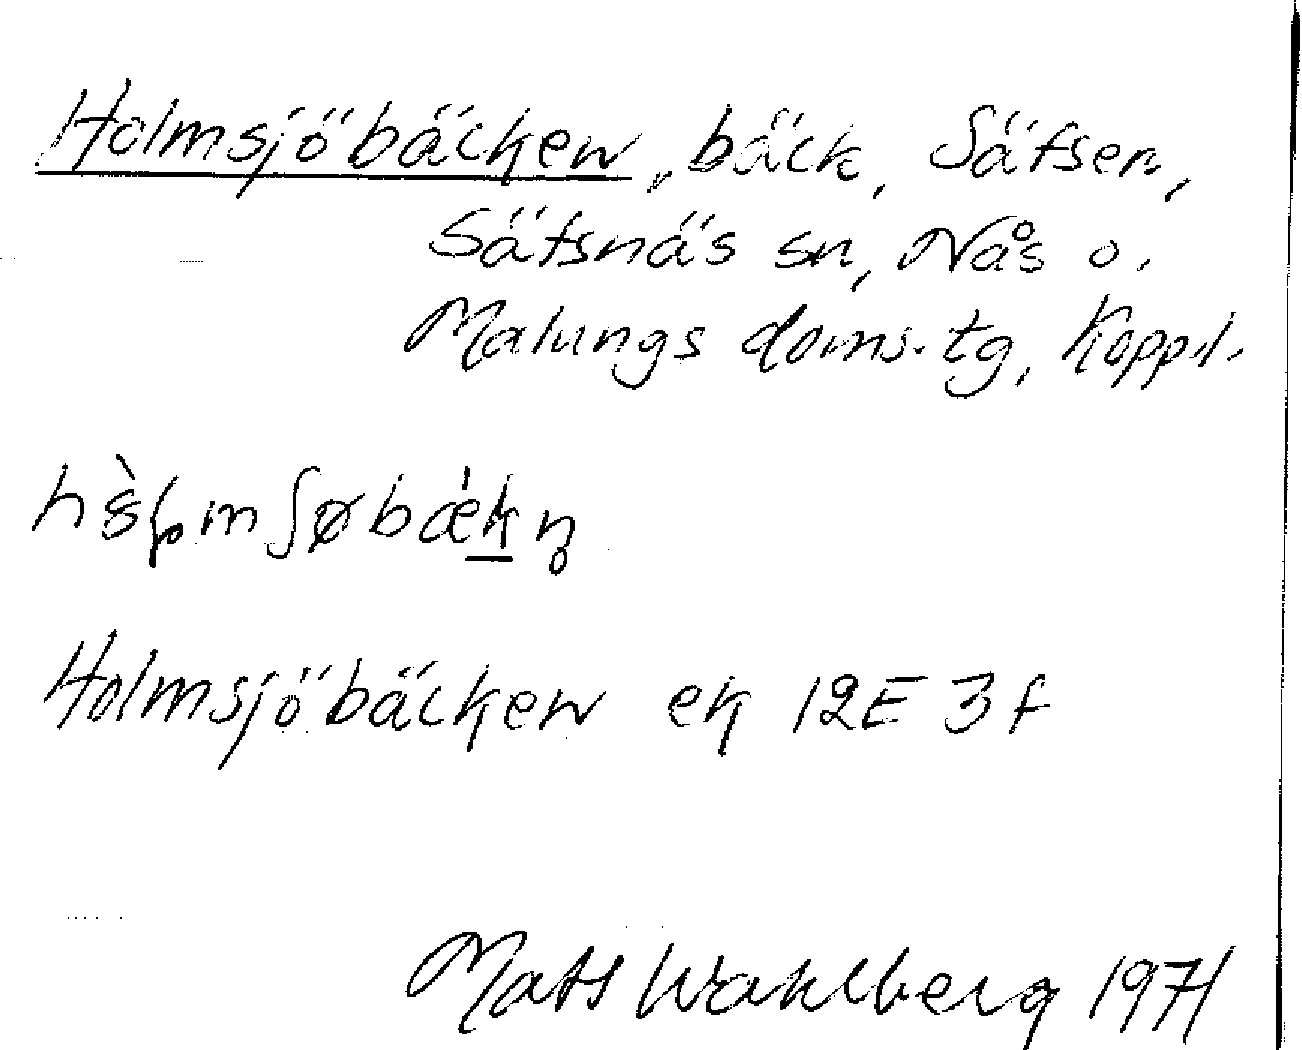 Holmsjöbäcken, bäck, Säfsen,
Säfsnäs sn, Nås o.
Malungs doms. tg, Koppl.
Holmsjöbäcken ek 12E 3f
Mats Wahlberg 1971